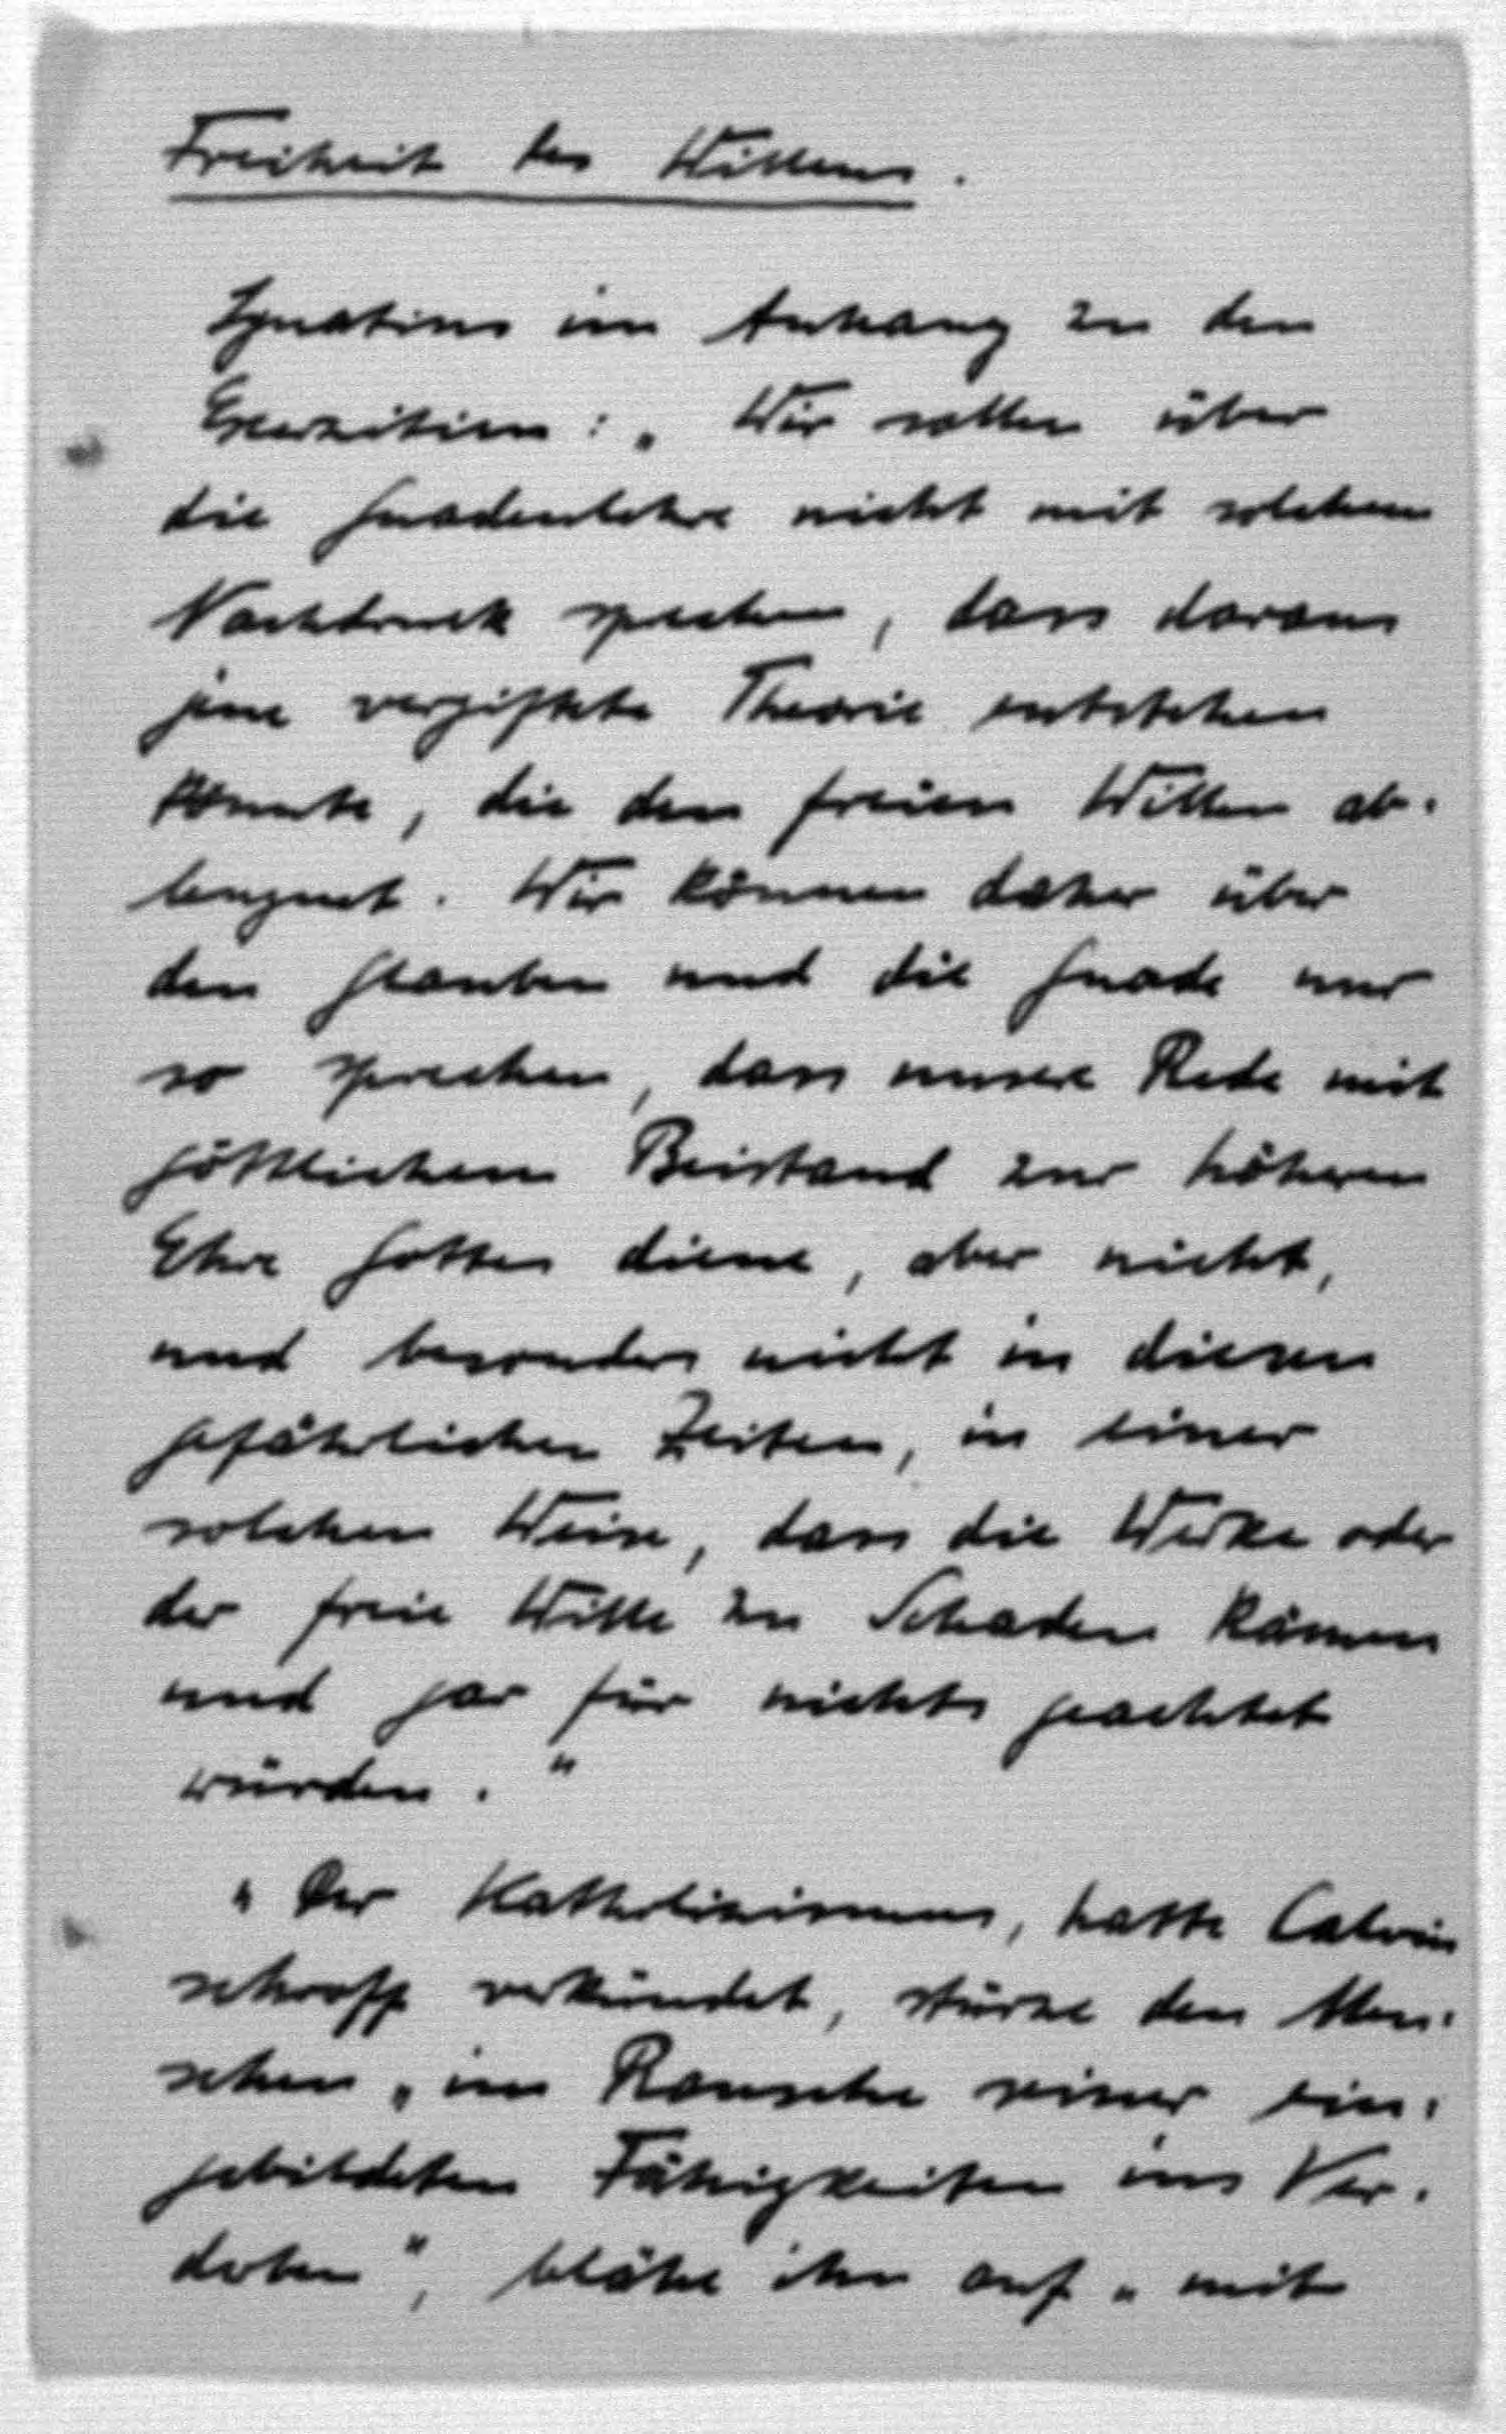 Freiheit des Willens.
Ignatius im Anhang zu den
Exerzitien: „Wir sollen über
die Gnadenlehre nicht mit solchem
Nachdruck sprechen, dass daraus
jene vergiftete Theorie entstehen
könnte, die den freien Willen ab-
leugnet. Wir können daher über
den Glauben und die Gnade nur
so sprechen, dass unsere Rede mit
göttlichem Beistand zur höheren
Ehre Gottes diene, aber nicht,
und besonders nicht in diesen
gefährlichen Zeiten, in einer
solchen Weise, dass die Werke oder
der freie Wille zu Schaden kämen
und gar für nichts geachtet
würden."
„Der Katholizismus, hatte Calvin
schroff verkündet, stürze den Men-
schen „im Rausche seiner ein-
gebildeten Fähigkeiten ins Ver-
derben", blähe ihn auf „mit